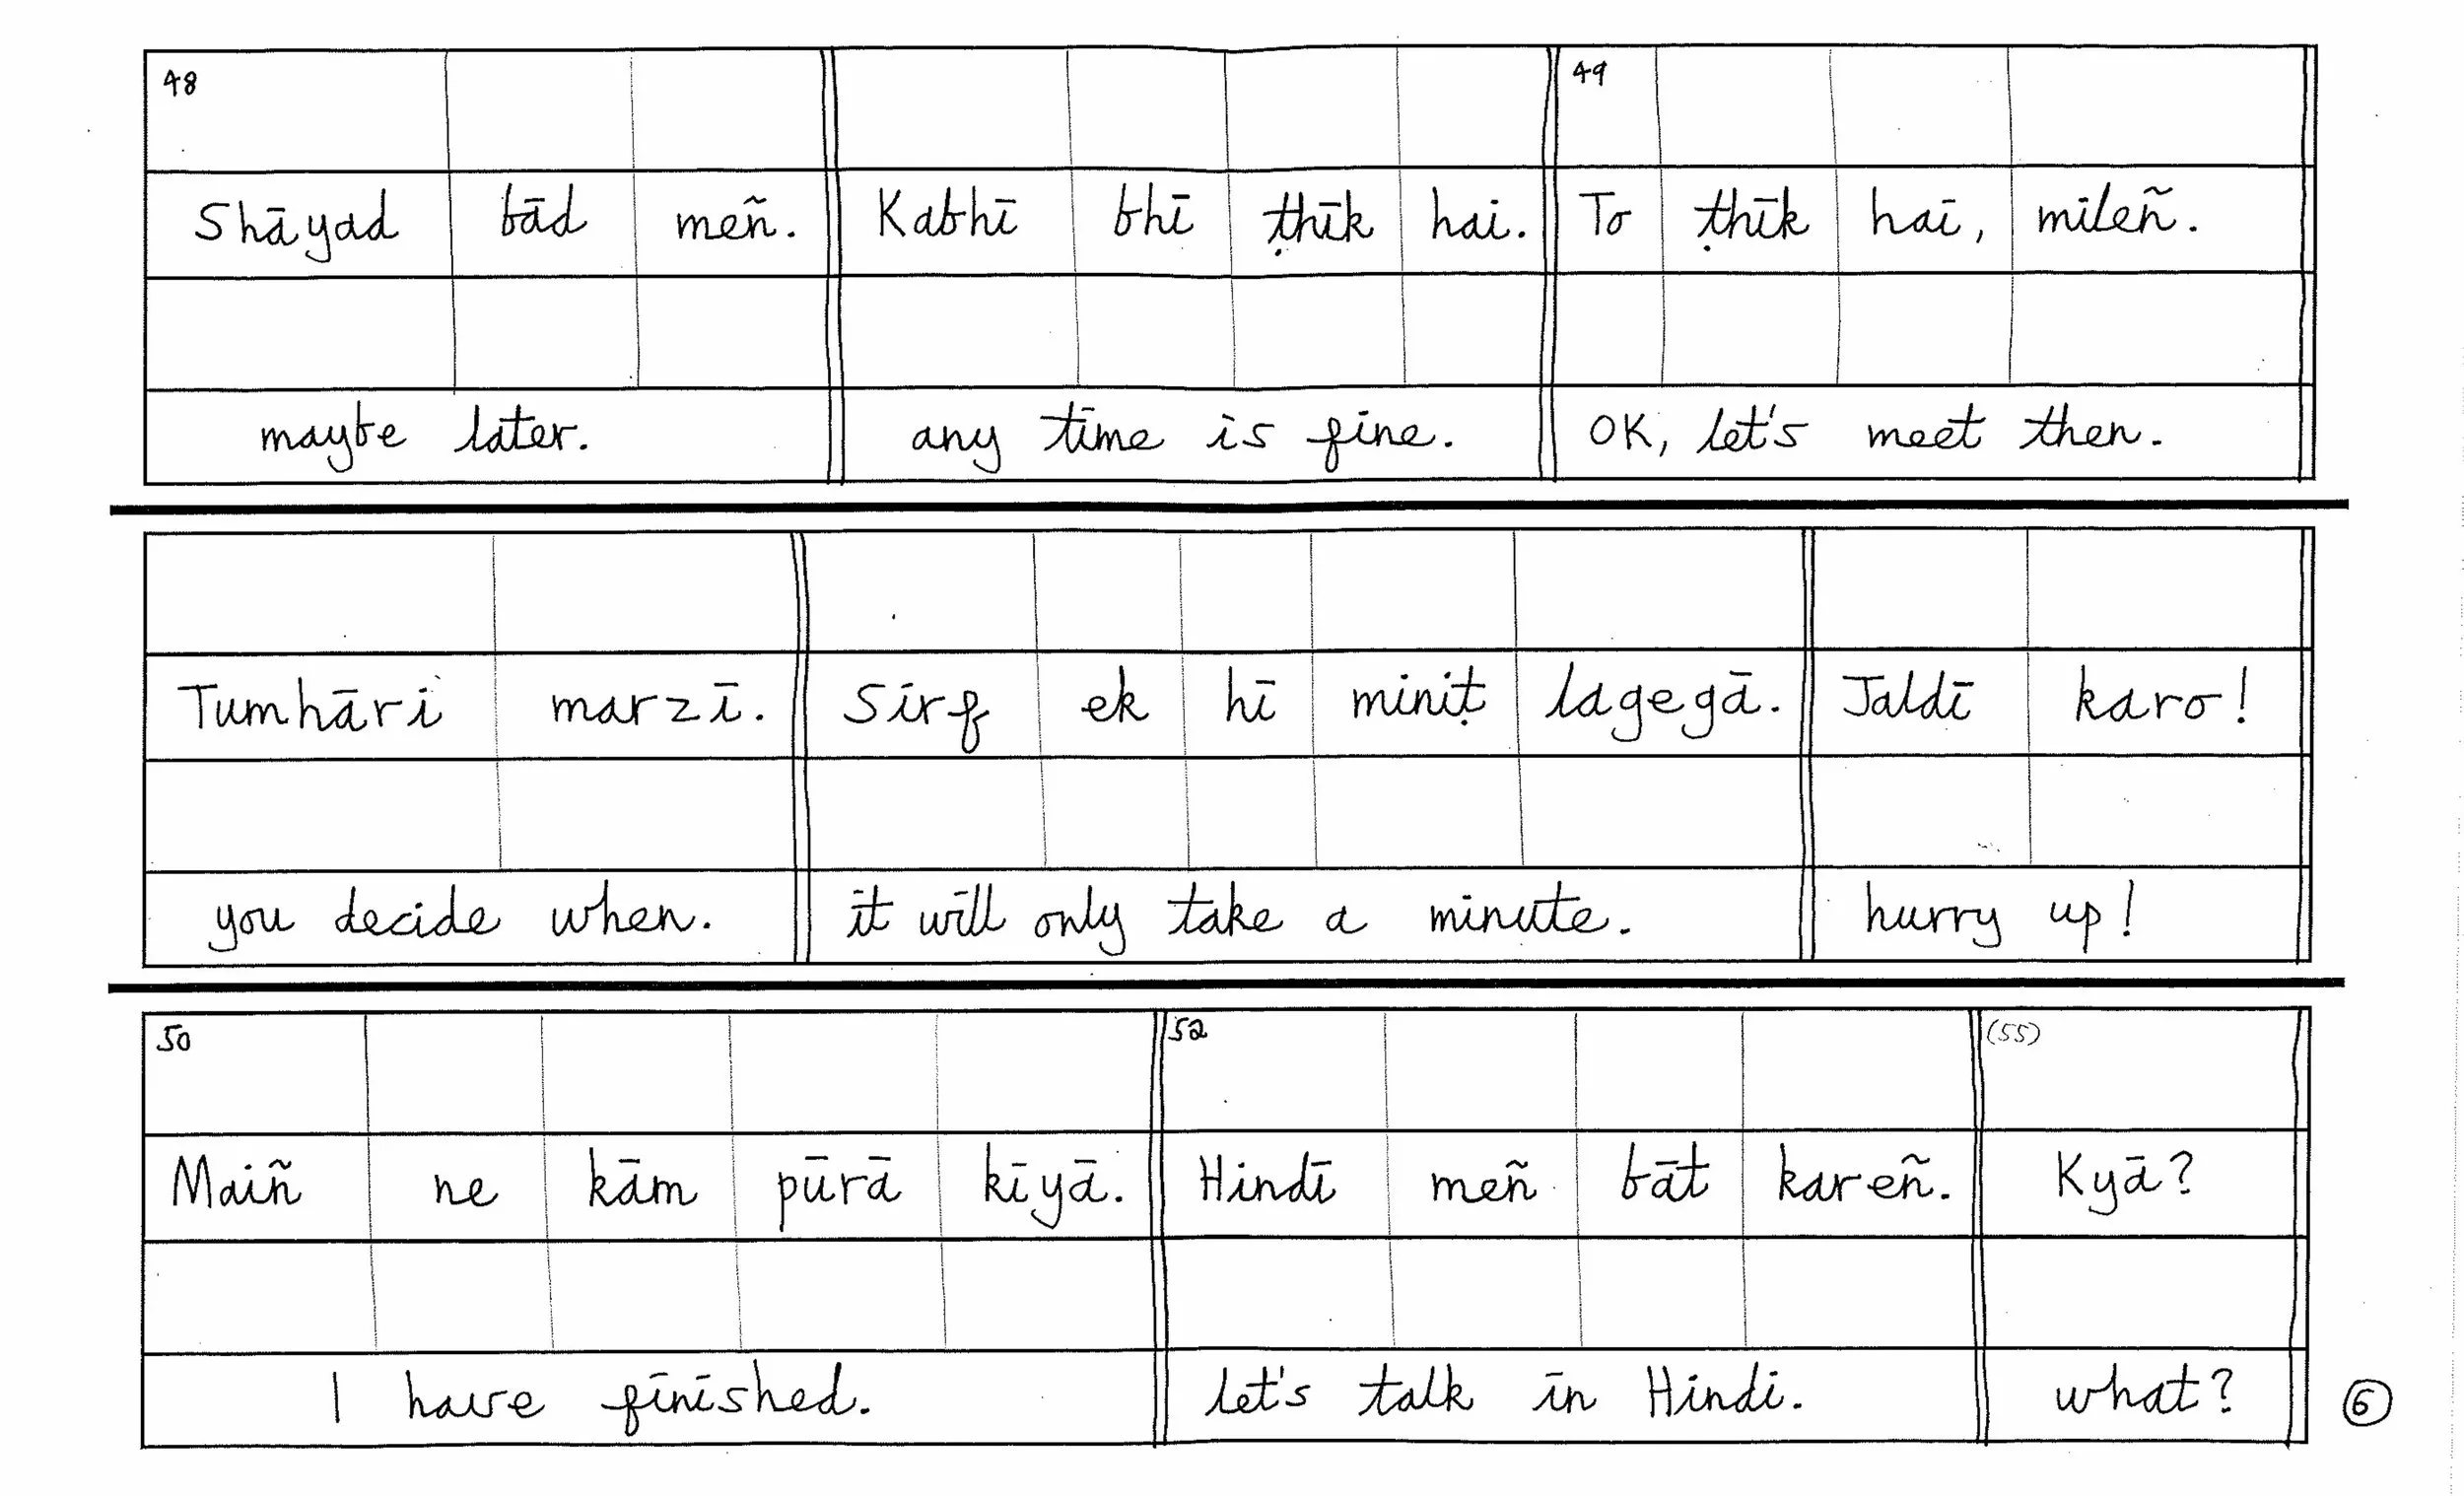 48 49
Shāyad bād meñ. Kabhī bhī ṭhīk hai. To ṭhīk hai, mileñ.
maybe later. any time is fine. OK, let's meet then.
Tumhāri marzī. Sirf ek hī miniṭ lagegā. Jaldī karo!
you decide when. it will only take a minute. hurry up!
50 52 (55)
Maiñ ne kām pūrā kiyā. Hindī meñ bāt kareñ. Kyā?
I have finished. let's talk in Hindi. what?
6